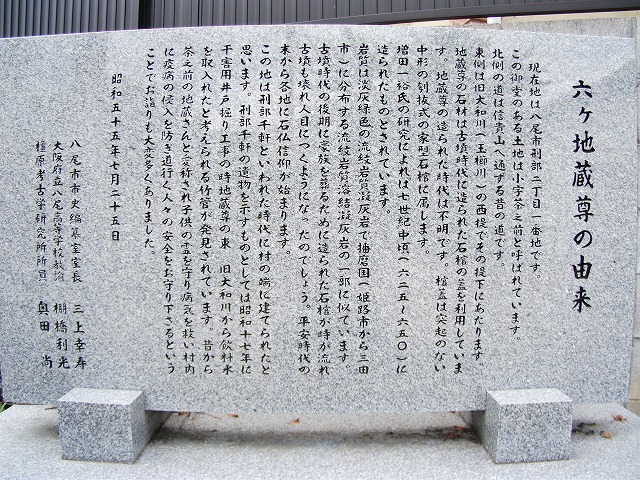 六ヶ地蔵尊の由来
現在地は八尾市刑部二丁目一番地です。
この御堂のある土地は小字茶之前と呼ばれています。
北側の道は信貴山へ通ずる昔の道です。
東側は旧大和川(玉櫛川)の西堤でその堤下にあたります。
地蔵尊の石材は古墳時代に造られた石棺の蓋を利用していま
す。地蔵尊の造られた時代は不明です。棺蓋は突起のない
中形の刳抜式の家型石棺に属します。
増田一裕氏の研究によれば七世紀中頃(六二五〜六五〇)に
造られたものとされています。
岩質は淡灰緑色の流紋岩質凝灰岩で播磨国(姫路市から三田
市)に分布する流紋岩質溶結凝灰岩の一部に似ています。
古墳時代の後期に豪族を葬るために造られた石棺が時が流れ
古墳も壊れ人目につくようになったのでしょう。平安時代の
末から各地に石仏信仰が始まります。
この地は刑部千軒といわれた時代に村の端に建てられたと
思います。刑部千軒の遺物を示すものとしては昭和十七年に
干害用井戸掘り工事の時地蔵尊の東 旧大和川から飲料水
を取入れたと考えられる竹管が発見されています。昔から
茶之前の地蔵さんと愛称され子供の霊を守り病気を救い村内
に疫病の侵入を防ぎ道行く人々の安全をお守り下さるという
ことでお詣りも大変多くありました。
昭和五十五年七月二十五日
八尾市市史編纂室室長 三上幸寿
大阪府立八尾高等学校教諭 棚橋利光
橿原考古学研究所所員 奥田尚